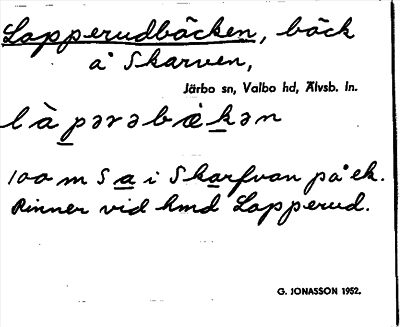 Lapperudbäcken, bäck
å Skarven,
Järbo sn, Valbo hd, Älvsb. ln.
làpərəbækən
100 m S a i Skarfvan på ek.
Rinner vid hmd Lapperud.
G. JONASSON 1952.